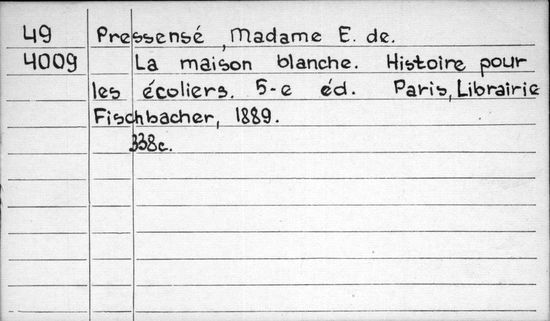 49 Pressensé, Madame E. de.
4009 La maison blanche. Histoire pour
les écoliers. 5-e éd. Paris, Librairie
Fischbacher, 1889.
338c.